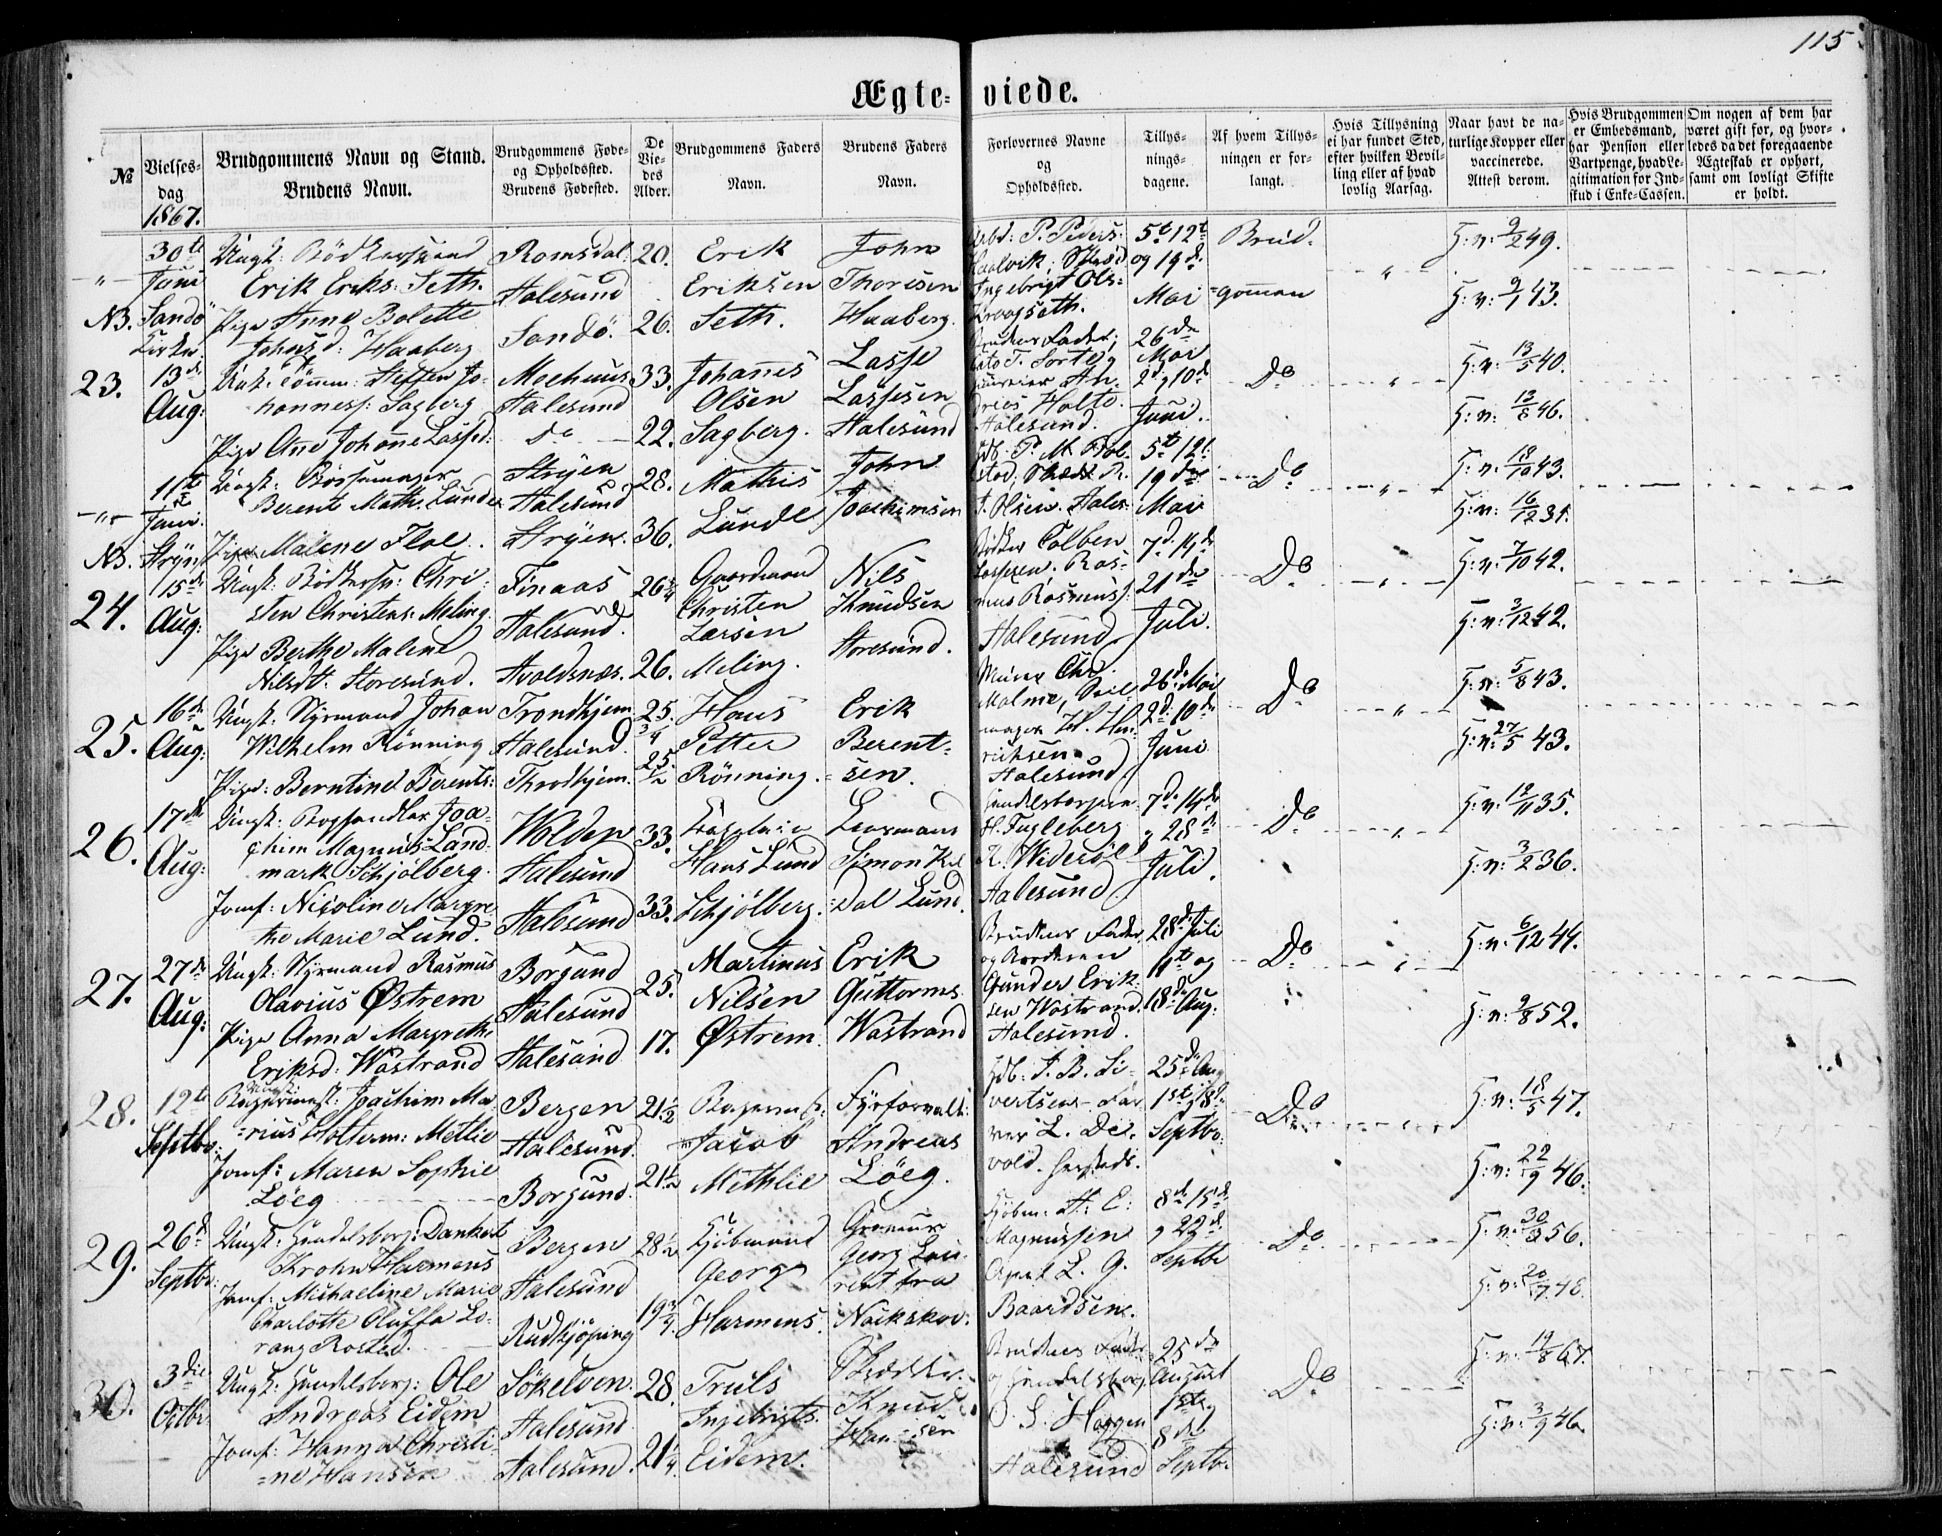 115
Ægteviede.
№
Vielses-
dag
1867.
Brudgommens Navn og Stand.
Brudens Navn.
Brudgommens Føde-
og Opholdssted.
Brudens Fødested.
De
Vie-
des
Alder.
Brudgommens Faders
Navn.
Brudens Faders
Navn.
Forlovernes Navne
og
Opholdssted.
Tillys-
nings-
dagene.
Af hvem Tillys-
ningen er for-
langt.
Hvis Tillysning
ei har fundet Sted,
efter hvilken Bevil-
ling eller af hvad
lovlig Aarsag.
Naar havt de na-
turlige Kopper eller
vaccinerede.
Attest derom.
Hvis Brudgommen
er Embedsmand,
har Pension eller
Vartpenge, hvad Le-
gitimation for Ind-
skud i Enke-Cassen.
Om nogen af dem har
været gift før, og hvor-
ledes da det foregaaende
Ægteskab er ophørt,
samt om lovligt Skifte
er holdt.
—"—
30te
Juni
NB. Sandö
Kirke.
Ungk:
Erik Eriks: Seth.
Pige Anne Bolette
Johnsd: Haaberg
Romsdal.
Aalesund
Sandö.
20.
26.
Erik
Eriksen
Seth.
John
Thoresen
Haaberg.
Arbd: P. Peders:
Haalvik;
Ingebrigt Ols:
Krogsæth.
5te 12te
og 19de
Mai
Brud-
=gomen
"
G: v: 9/2 49.
G: v: 9/1 43.
23.
13de
Aug:
Ungk: Tömm: Steffen Jo-
hanness: Sagberg
Pige Ane Johane Lassed:
Moehuus
Aalesund
Do
33.
22.
Johanes
Olsen
Sagberg.
Lasse
Lassesen
Aalesund
Brudens Fader;
Holte.
Aalesund.
26de
Mai
2d. 10de
Juni.
Do
"
G: v: 13/5 40.
G: v: 13/8 46.
—"—
11te
Juni.
NB. Stryn
Ungk: Bössemager
Berent Math. Lunde
Pige Malene Floe.
Stryen
Aalesund
Stryen.
28.
36.
Mathis
Lunde
John
Joachimsen
J. Olsen. Aales:
5te 12te
19de
Mai
Do
"
G: v: 18/10 43.
G: v: 16/12 31.
24.
15de
Aug:
Ungk: Bödkersv: Chri-
sten Christens: Meling.
Pige Berthe Malene
Nilsdt: Storesund.
Finaas
Aalesund.
Avaldsnæs.
26 1/4
26.
Gaardmand
Christen
Larsen
Meling.
Nils
Knudsen
Storesund.
Bödker Colben
Lassesen. Ras-
mus Rasmuss:
Aalesund
7d. 14de
21de
Juli.
Do
"
G: v: 7/10 42.
G: v: 3/12 42.
25.
16de
Aug:
Ungk: Styrmand Johan
Wilhelm Rönning
Pige: Berntine Berents:
Trondhjem
Aalesund.
Throdhjem.
25.
3/4
25.
1/2
Hans
Petter
Rönning.
Erik
Berent-
sen.
Murer Chr.
Malme, Seil-
mager H. Hen-
riksen.
Aalesund
26de Mai
2d. 10de
Juni
Do
"
G: v: 5/8 43.
G: v: 27/5 43.
26.
17de
Aug:
Ungk: Boghandler Joa-
chim Magnus Land-
mark Schjölberg.
Jomf: Nicoline Margre-
the Marie Lund.
Wolden
Aalesund
Aalesund
33.
33.
Hans Lund
Schjölberg.
Lensmand
Simon Kil-
dal Lund.
Handelsborger
H. Fugleberg
K. Wideröe,
Aalesund
7d. 14de
g 28de
Juli.
Do
"
G: v: 13/11 35.
G: v: 3/2 36.
27.
27de
Aug:
Ungk: Styrmand Rasmus
Olavius Østrem
Pige Anna Margrethe
Eriksd: Wastrand
Borgund
Aalesund
Aalesund
25.
17.
Martinus
Nilsen
Østrem.
Erik
Guttorms.
Wastrand
Brudens Fader
og Broderen
Gunder Erik-
sen Wastrand.
Aalesund.
28de Juli
4te og
18de Aug:
Do
"
G: v: 6/12 44.
G: v: 9/8 52.
28.
12te
Septbr:
Ungk:
Bagermest: Joachim Ma-
rius Holterm: Metlie
Jomf: Maren Sophie
Löeg
Bergen
Aalesund.
Borgund.
21 1/2
21 1/2
Jacob
Methlie
Fyrforvalt:
Andreas
Löeg.
Hdb: J. B. Si-
vertsen. Far-
ver L. De-
vold.
25de Aug
1ste, 8de
Septbr:
Do
G: v: 18/5 47.
G: v: 22/9 46.
29.
26de
Septbr:
Ungk: Handelsborg: Dankert
Krohn Harmens
Jomf: Michaeline Marie
Charlotte Oluffa Lo-
rang Rosted.
Bergen
Aalesund
Rudkjöping
28 1/2
19 3/4
Kjöbmand
Georg
Harmens.
Georg Lau-
rent fra
Nackskov.
Kjöbm: H. E.
Magnussen
L. G.
Baardsen.
8de 15de
g 22de
Septbr
Do
G: v: 30/8 56.
G: v: 20/7 48.
30.
3die
Octbr
Ungk: Handelsborg: Ole
Andreas Eidem
Jomf: Hanna Christi-
=ne Hansen
Sökelven.
Aalesund.
Aalesund.
28.
21 1/4
Truls
Ingebrigts.
Eidem.
Knud
Hansen
Brudens Fader
og Handelsborg
O. S. Haggen
Aalesund
25de
August
1ste,
8de
Septbr.
Do
G: v: 19/8 67.
G: v: 3/9 46.